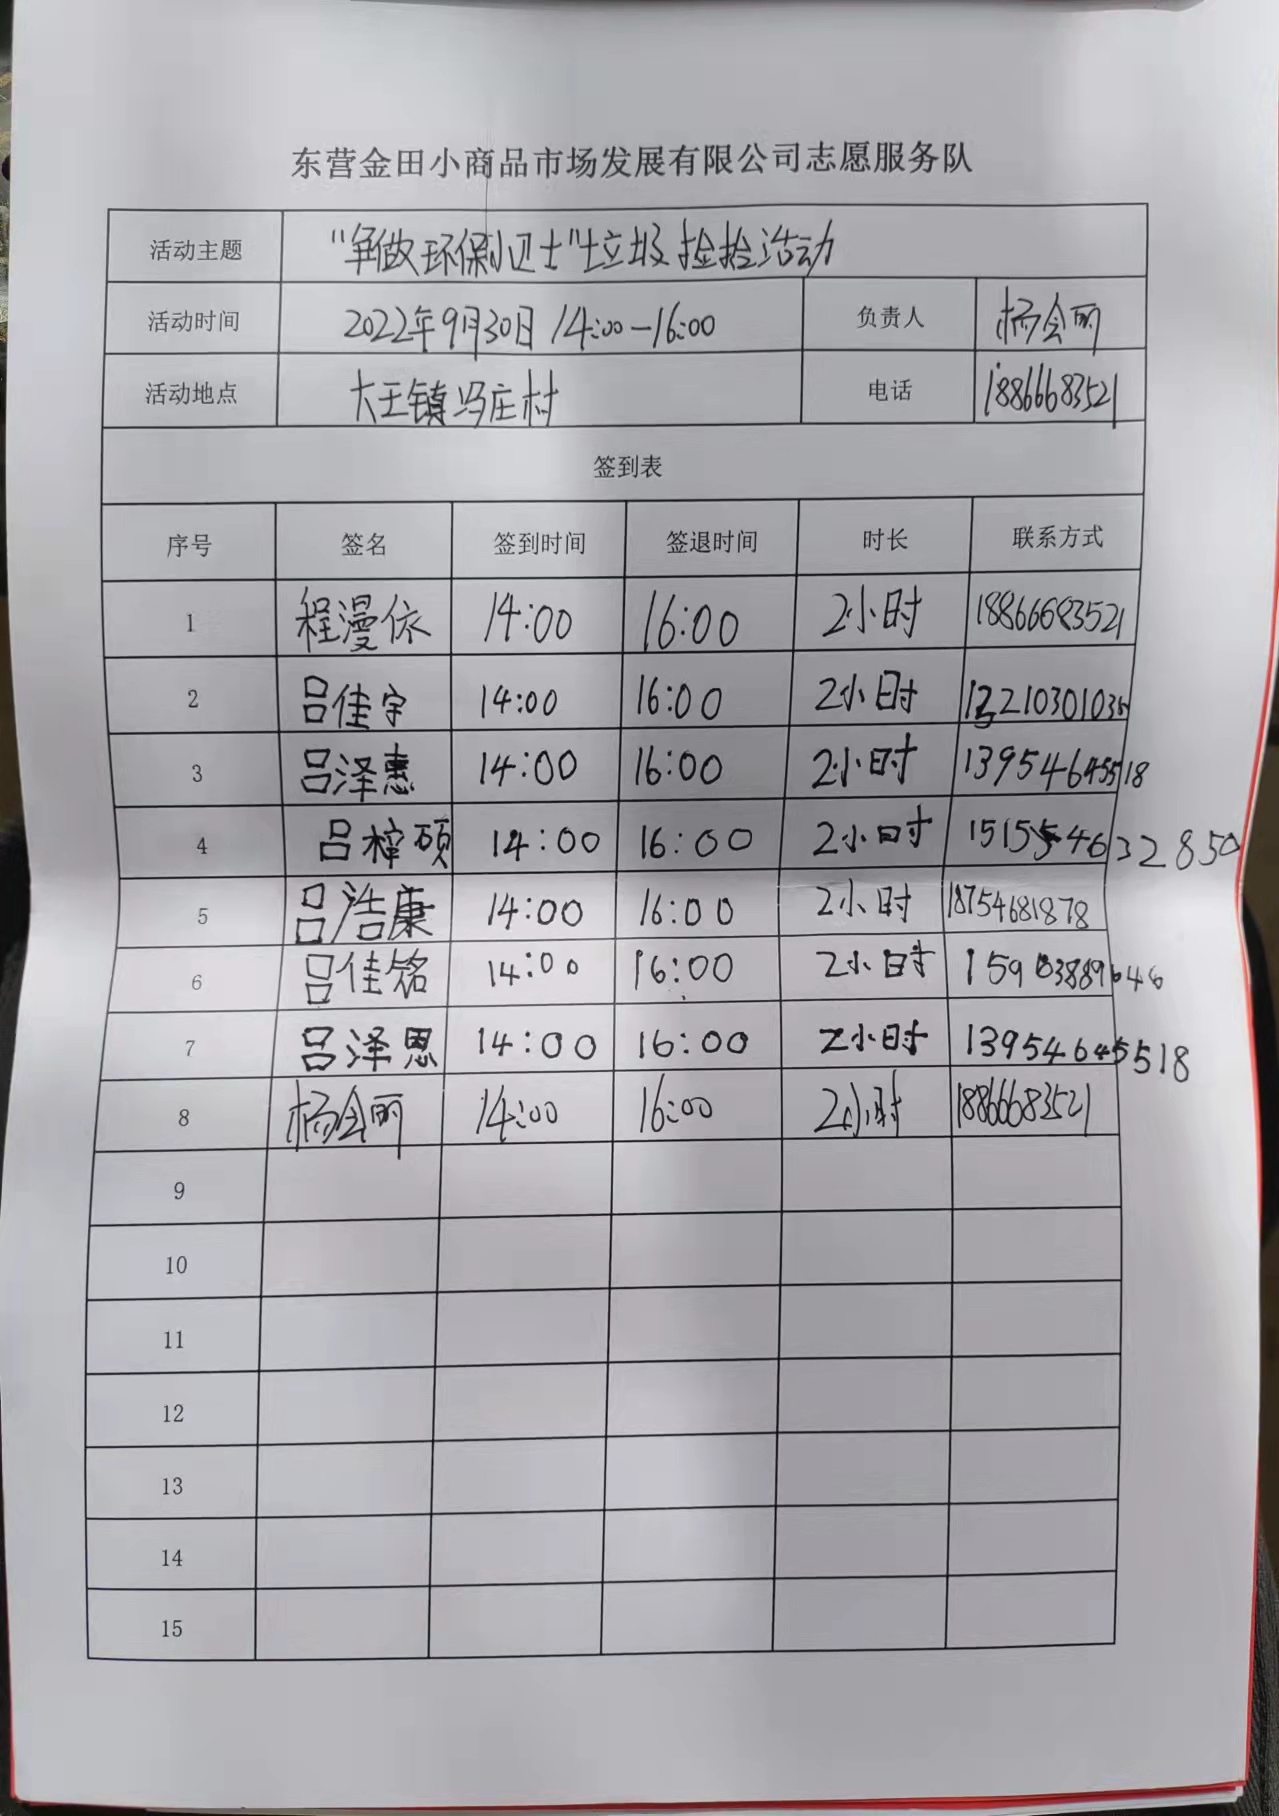 东营金田小商品市场发展有限公司志愿服务队
活动主题 "争做环保小卫士"垃圾捡拾活动
活动时间 2022年9月30日 14:00-16:00 负责人 杨会丽
活动地点 大王镇冯庄村 电话 18866683521
签到表
序号 签名 签到时间 签退时间 时长 联系方式
1 程漫依 14:00 16:00 2小时 18866683521
2 吕佳宇 14:00 16:00 2小时
3 吕泽惠 14:00 16:00 2小时 13954645518
4 14:00 16:00 2小时
5 吕浩康 14:00 16:00 2小时 18754681878
6 吕佳铭 14:00 16:00 2小时
7 吕泽恩 14:00 16:00 2小时 13954645518
8 杨会丽 14:00 16:00 2小时 18866683521
9
10
11
12
13
14
15